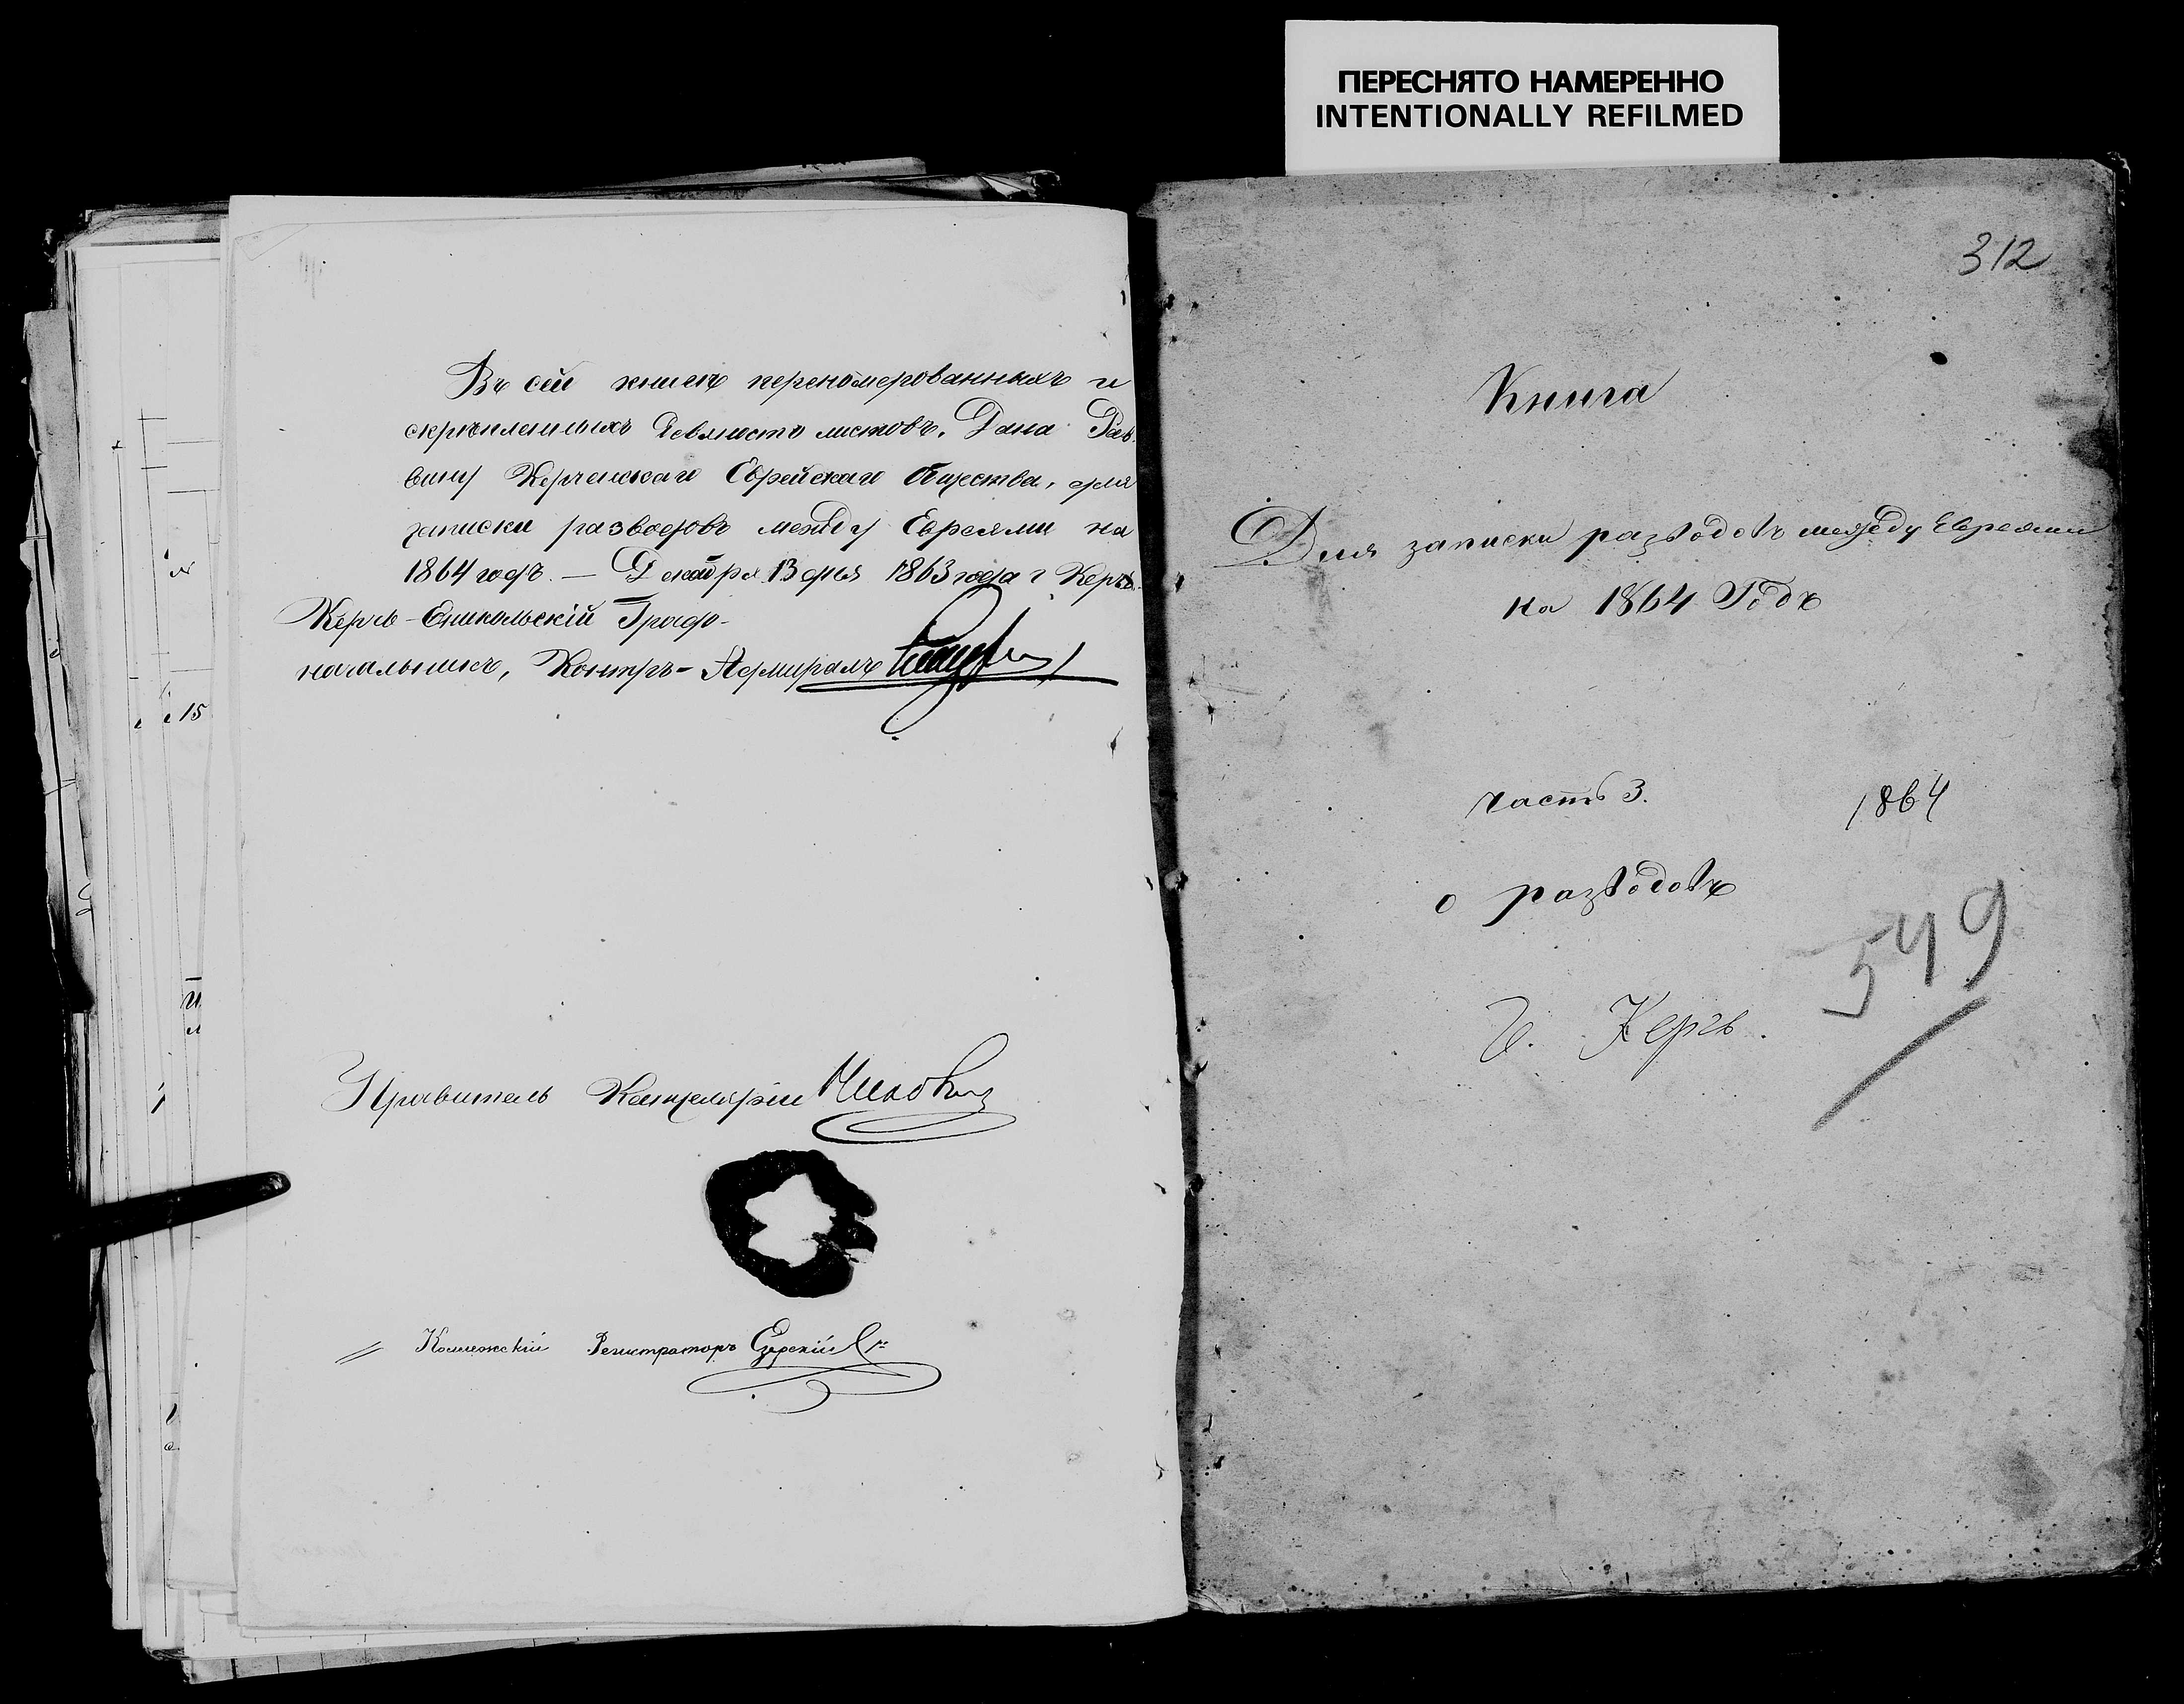 ПЕРЕСНЯТО НАМЕРЕННО
INTENTIONALLY REFILMED
Въ сей книгѣ перенумерованныхъ и
скрѣпленныхъ девяносто листовъ. Дана Рав-
вину Керченскаго Еврейскаго Общества, для
записки разводовъ между Евреями на
1864 годъ. — Декабря 13 дня 1863 года г. Керчь.
Керчь-Еникольскій Градо-
начальникъ, Контръ-Адмиралъ
Правитель Канцеляріи
Коллежскій Регистраторъ
312
Книга
Для записки разводовъ между Евреями
на 1864 Годъ
часть 3. 1864
о разводовъ
549
г. Керчь.
15